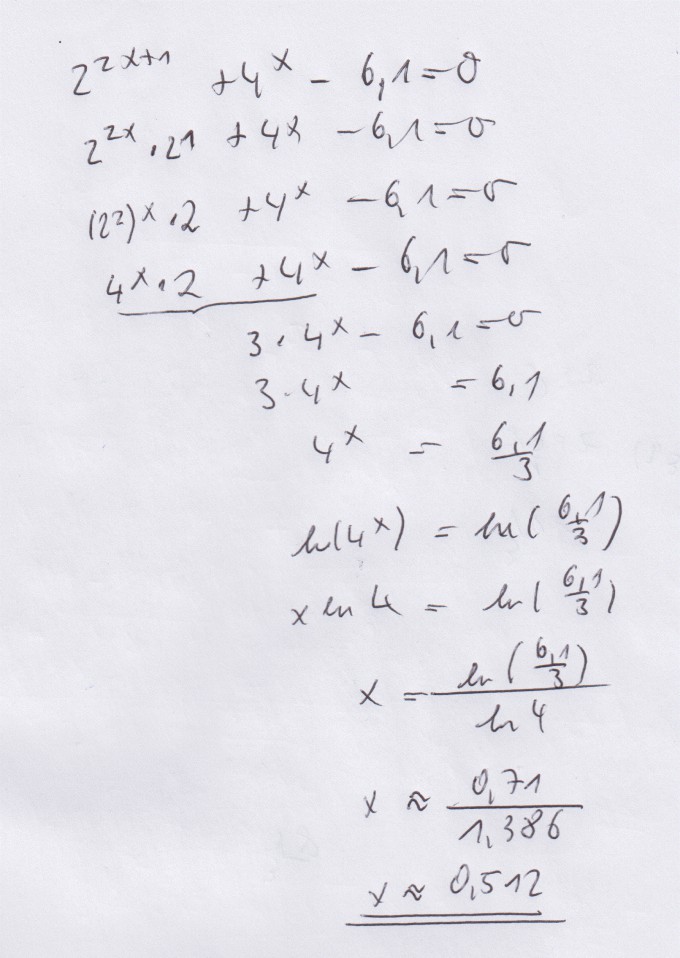 2^(2x+1) + 4^x - 6,1 = 0
2^(2x) · 2^1 + 4^x - 6,1 = 0
(2^2)^x · 2 + 4^x - 6,1 = 0
4^x · 2 + 4^x - 6,1 = 0
3 · 4^x - 6,1 = 0
3 · 4^x = 6,1
4^x = 6,1/3
ln(4^x) = ln(6,1/3)
x ln 4 = ln(6,1/3)
x = ln(6,1/3) / ln 4
x ≈ 0,71 / 1,386
x ≈ 0,512